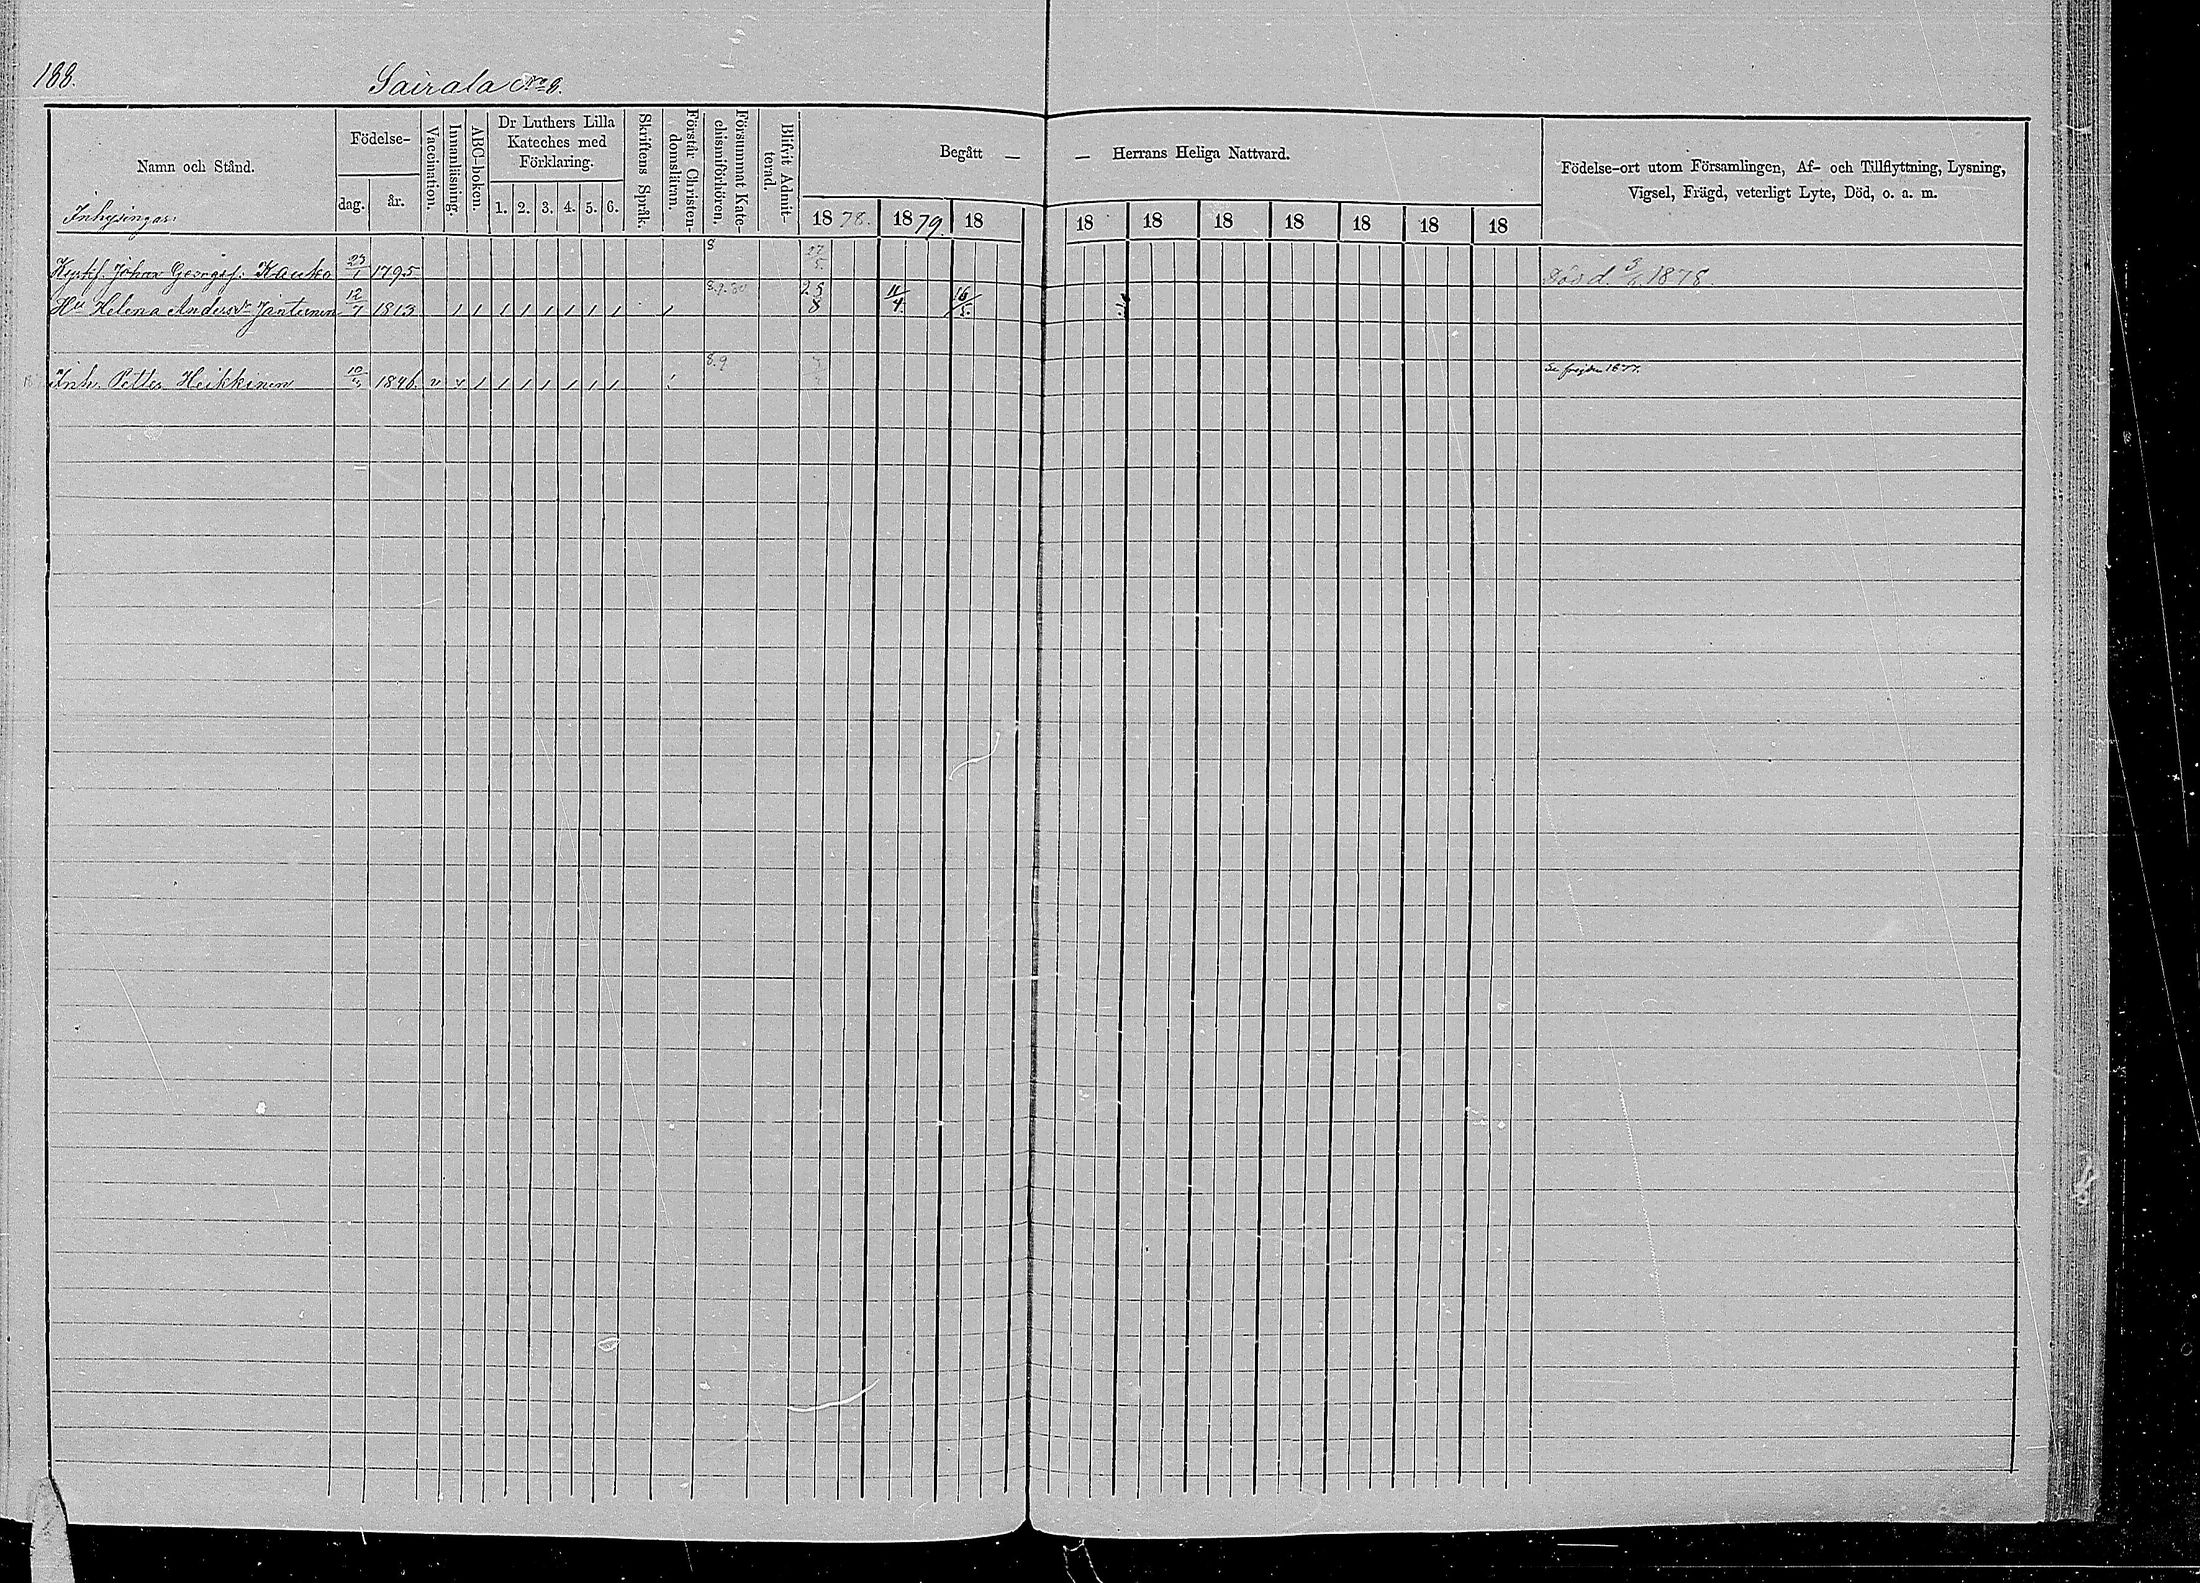 188.
Sairala No 8.
Namn och Stånd.
Födelse-
dag.
år.
Vaccination.
Innanläsning.
ABC-boken.
Dr Luthers Lilla
Kateches med
Förklaring.
1. 2. 3. 4. 5. 6.
Skriftens Språk.
Förstår Christen-
domsläran.
Försummat Kate-
chismiförhören.
Blifvit Admit-
terad.
Begått —
— Herrans Heliga Nattvard.
Födelse-ort utom Församlingen, Af- och Tillflyttning, Lysning,
Vigsel, Frägd, veterligt Lyte, Död, o. a. m.
18 78. 18 79. 18 18 18 18 18 18 18 18
Inhysingar:
Johan Georgsf: Kauko 23/1 1795 8 27/5 Död d. 1878.
Hu Helena Andersdr Jantunen 12/7 1813 8.9.80 25/8 11/4 16/5
Inh. Petter Heikkinen 1846 8.9 Se frejden 1877.